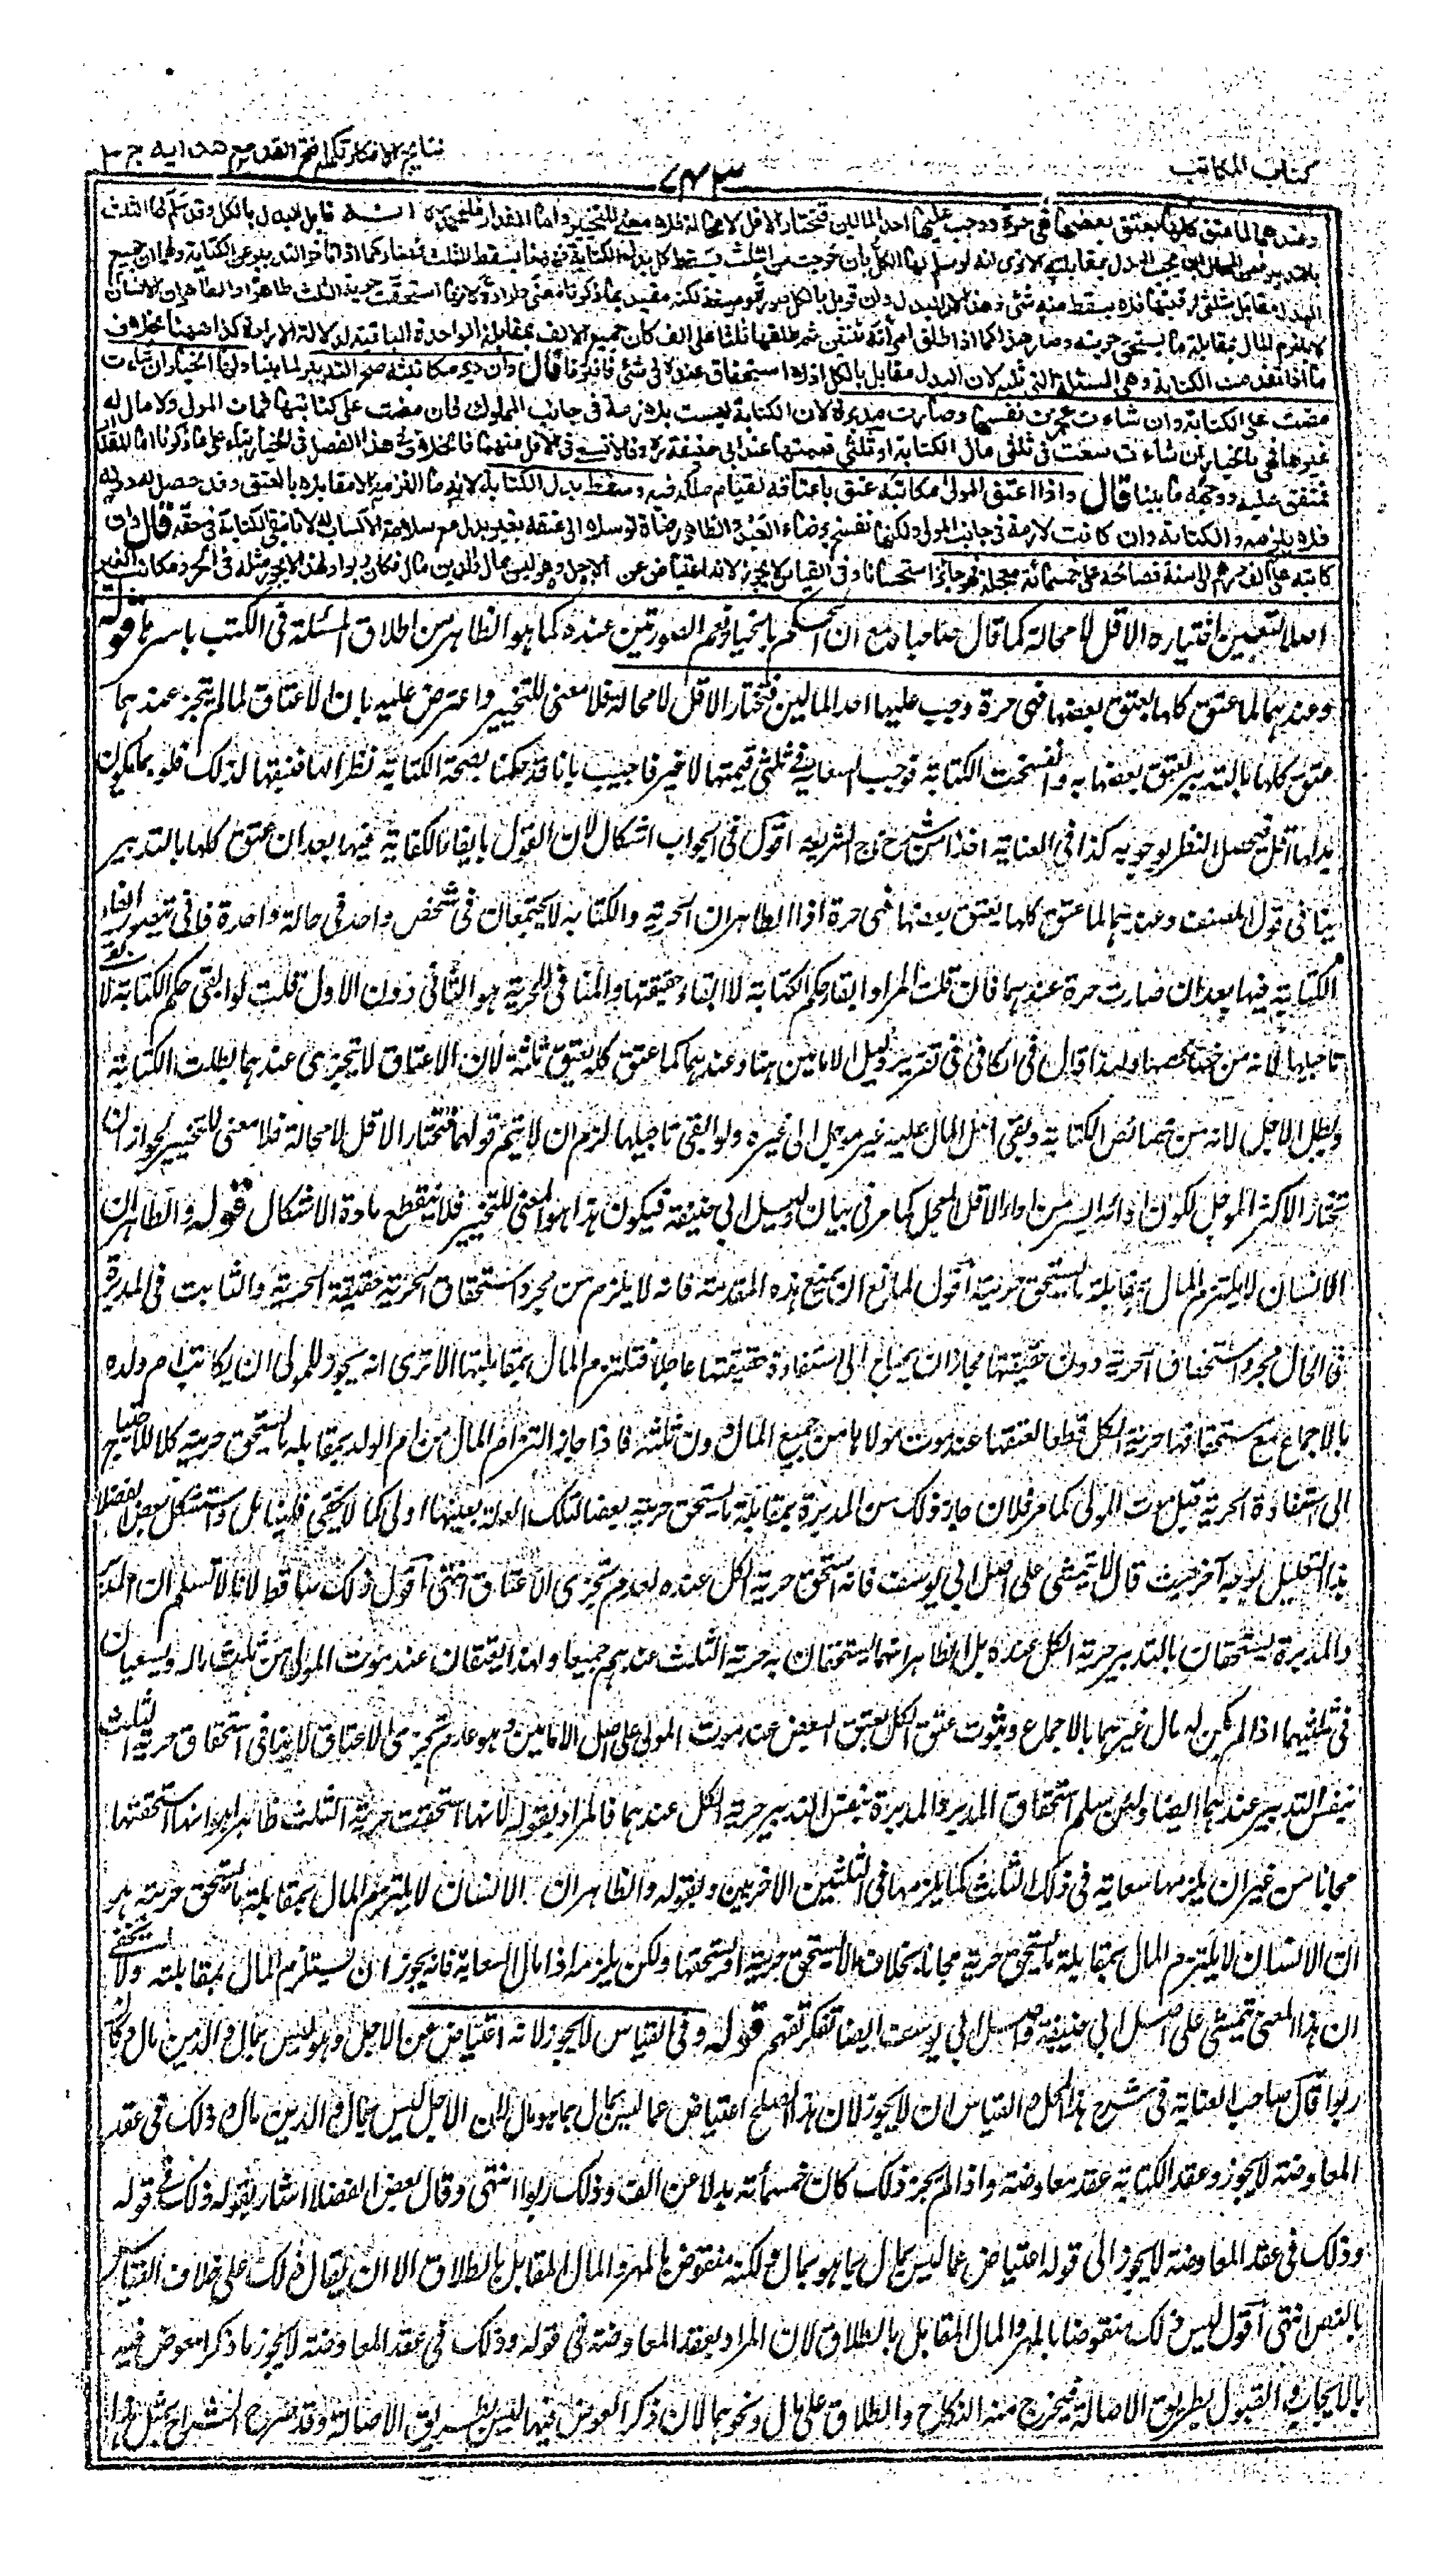 كتاب المكاتب
٧٤٣
نتايج الافكار تكملة فتح القدير مع هدايه ج ٣
وعندهما لما عتق كلها بعتق بعضها فهى حرة ووجب عليها احد المالين فتختار الاقل لا محالة فلا معنى للتخيير واما المقدار فلمحمد انه قابل البدل بالكل وقد سلم لها الثلث
بالتدبير فمن المحال ان يجب البدل بمقابلته الا ترى انه لو سلم لها الكل بان خرجت من الثلث يسقط كل بدل الكتابة فهنا يسقط الثلث فصار كما اذا تأخر التدبير عن الكتابة ولهما ان جميع
البدل مقابل بثلثى رقبتها فلا يسقط منه شئ وهذا لان البدل وان قوبل بالكل صورة وصيغة لكنه مقيد بما ذكرنا معنى وارادة لانها استحقت حرية الثلث ظاهرا والظاهر ان الانسان
لا يلتزم المال بمقابلة ما يستحق حريته وصار هذا كما اذا طلق امرأته ثنتين ثم طلقها ثلثا على الف كان جميع الالف بمقابلة الواحدة الباقية لدلالة الارادة كذا ههنا بخلاف
ما اذا تقدمت الكتابة وهى المسئلة التى تليه لان البدل مقابل بالكل اذ لا استحقاق عنده فى شئ فافترقا قال وان دبر مكاتبته صح التدبير لما بينا ولها الخيار ان شاءت
مضت على الكتابة وان شاءت عجزت نفسها وصارت مدبرة لان الكتابة ليست بلازمة فى جانب المملوك فان مضت على كتابتها فمات المولى ولا مال له
غيرها فهى بالخيار ان شاءت سعت فى ثلثى مال الكتابة او ثلثى قيمتها عند ابى حنيفة وقالا تسعى فى الاقل منهما فالخلاف فى هذا الفصل فى الخيار بناء على ما ذكرنا اما المقدار
فمتفق عليه ووجهه ما بينا قال واذا اعتق المولى مكاتبه عتق باعتاقه لقيام ملكه فيه وسقط بدل الكتابة لانه ما التزمه الا مقابلا بالعتق وقد حصل له دونه
فلا يلزمه والكتابة وان كانت لازمة فى جانب المولى ولكنها تفسخ برضاء العبد والظاهر رضاه توسلا الى عتقه بغير بدل مع سلامة الاكساب له لانا نبقى الكتابة فى حقه قال وان
كاتبه على الف درهم الى سنة فصالحه على خمسمائة معجلة فهو جائز استحسانا وفى القياس لا يجوز لانه اعتياض عن الاجل وهو ليس بمال والدين مال فكان ربوا ولهذا لا يجوز مثله فى الحر ومكاتب الغير
اصلا لتعيين اختياره الاقل لا محالة كما قال صاحباه مع ان الحكم بالخيار يعم الصورتين عنده كما هو الظاهر من اطلاق المسئلة فى الكتب باسرها قوله
وعندهما لما عتق كلها بعتق بعضها فهى حرة وجب عليها احد المالين فتختار الاقل لا محالة فلا معنى للتخيير واعترض عليه بان الاعتاق لما لم يتجز عندهما
عتق كلها بالتدبير لعتق بعضها به وانفسخت الكتابة فوجب السعاية فى ثلثى قيمتها لا غير فاجيب بانا قد حكمنا بصحة الكتابة نظرا لها فنبقيها لذلك فلربما يكون
بدلها اقل فيحصل النظر بوجوبه كذا فى العناية اخذا من شرح تاج الشريعة اقول فى الجواب اشكال لان القول بابقاء الكتابة فيها بعد ان عتق كلها بالتدبير
ينافى قول المصنف وعندهما لما عتق كلها بعتق بعضها فهى حرة اذ الظاهر ان الحرية والكتابة لا يجتمعان فى شخص واحد فى حالة واحدة فانى تيصور ابقاء
الكتابة فيها بعد ان صارت حرة عندهما فان قلت المراد ابقاء حكم الكتابة لا ابقاء حقيقتها والمنافى للحرية هو الثانى دون الاول قلت لو ابقى حكم الكتابة لابقى
تاجيلها لانه من خصائصها ولهذا قال فى الكافى فى تقرير دليل الامامين هنا وعندهما لما عتق كله بعتق ثلثه لان الاعتاق لا يتجزى عندهما بطلت الكتابة
وبطل الاجل لانه من خصائص الكتابة وبقى اصل المال عليه غير مؤجل الى غيره ولو ابقى تاجيلها لزم ان لا يتم قولهما فتختار الاقل لا محالة فلا معنى للتخيير لجواز ان
تختار الاكثر المؤجل لكون ادائه ايسر من اداء الاقل المعجل كما مر فى بيان دليل ابى حنيفة فيكون هذا هو المعنى للتخيير فلا ينقطع مادة الاشكال قوله والظاهر ان
الانسان لا يلتزم المال بمقابلة ما يستحق حريته اقول لمانع ان يمنع هذه المقدمة فانه لا يلزم من مجرد استحقاق الحرية حقيقة الحرية والثابت فى المدبرة
فى الحال مجرد استحقاق الحرية دون حقيقتها فجاز ان يحتاج الى استفادة حقيقتها عاجلا فتلتزم المال بمقابلتها الا ترى انه يجوز للمولى ان يكاتب ام ولده
بالاجماع مع استحقاقها حرية الكل قطعا لعتقها عند موت مولاها من جميع المال دون ثلثه فاذا جاز التزام المال من ام الولد بمقابلة ما يستحق حريته كلا للاحتياج
الى استفادة الحرية قبل موت المولى كما مر فلان جاز ذلك من المدبرة بمقابلة ما يستحق حريته بعضا لتلك العلة بعينها اولى كما لا يخفى فليتامل واستشكل بعض الفضلا
هذا التعليل بوجه آخر حيث قال لا يتمشى على اصل ابى يوسف فانه استحق حرية الكل عنده لعدم تجزى الاعتاق انتهى اقول ذلك ساقط لانا لا نسلم ان المدبر
والمدبرة يستحقان بالتدبير حرية الكل عنده بل الظاهر انهما يستحقان به حرية الثلث عندهم جميعا ولهذا يعتقان عند موت المولى من ثلث ماله ويسعيان
فى ثلثيهما اذا لم يكن له مال غيرهما بالاجماع وثبوت عتق الكل بعتق البعض عند موت المولى على اصل الامامين وهو عدم تجزى الاعتاق لا ينافى استحقاق حرية الثلث
بنفس التدبير عندهما ايضا ولئن سلم استحقاق المدبر والمدبرة بنفس التدبير حرية الكل عندهما فالمراد بقوله لانها استحقت حرية الثلث ظاهرا هو انها استحقتها
مجانا من غير ان يلزمها سعاية فى ذلك الثلث كما يلزمها فى الثلثين الاخرين وبقوله والظاهر ان الانسان لا يلتزم المال بمقابلة ما يستحق حريته هو
ان الانسان لا يلتزم المال بمقابلة ما يستحق حريته مجانا بخلاف ما لا يستحق حريته او يستحقها ولكن يلزمه اذا مال السعاية فانه يجوز ان يستلزم المال بمقابلته ولا يخفى
ان هذا المعنى يتمشى على اصل ابى حنيفة واصل ابى يوسف ايضا تفكر تفهم قوله وفى القياس لا يجوز لانه اعتياض عن الاجل وهو ليس بمال والدين مال فكان
ربوا قال صاحب العناية فى شرح هذا الكلام والقياس ان لا يجوز لان هذا الصلح اعتياض عما ليس بمال بما هو مال لان الاجل ليس بمال والدين مال وذلك فى عقد
المعاوضة لا يجوز وعقد الكتابة عقد معاوضة واذا لم يجز ذلك كان خمسمائة بدلا عن الف وذلك ربوا انتهى وقال بعض الفضلا اشار بقوله ذلك فى قوله
وذلك فى عقد المعاوضة لا يجوز الى قوله اعتياض عما ليس بمال بما هو بمال ولكنه منقوض بالمهر والمال المقابل بالطلاق الا ان يقال ذلك على خلاف القياس
بالنص انتهى اقول ليس ذلك منقوضا بالمهر والمال المقابل بالطلاق لان المراد بعقد المعاوضة فى قوله وذلك فى عقد المعاوضة لا يجوز ما ذكر العوض فيه
بالايجاب والقبول بطريق الاصالة فيخرج منه النكاح والطلاق على مال ونحوهما لان ذكر العوض فيها ليس بطريق الاصالة وقد صرح الشراح بمثل هذا